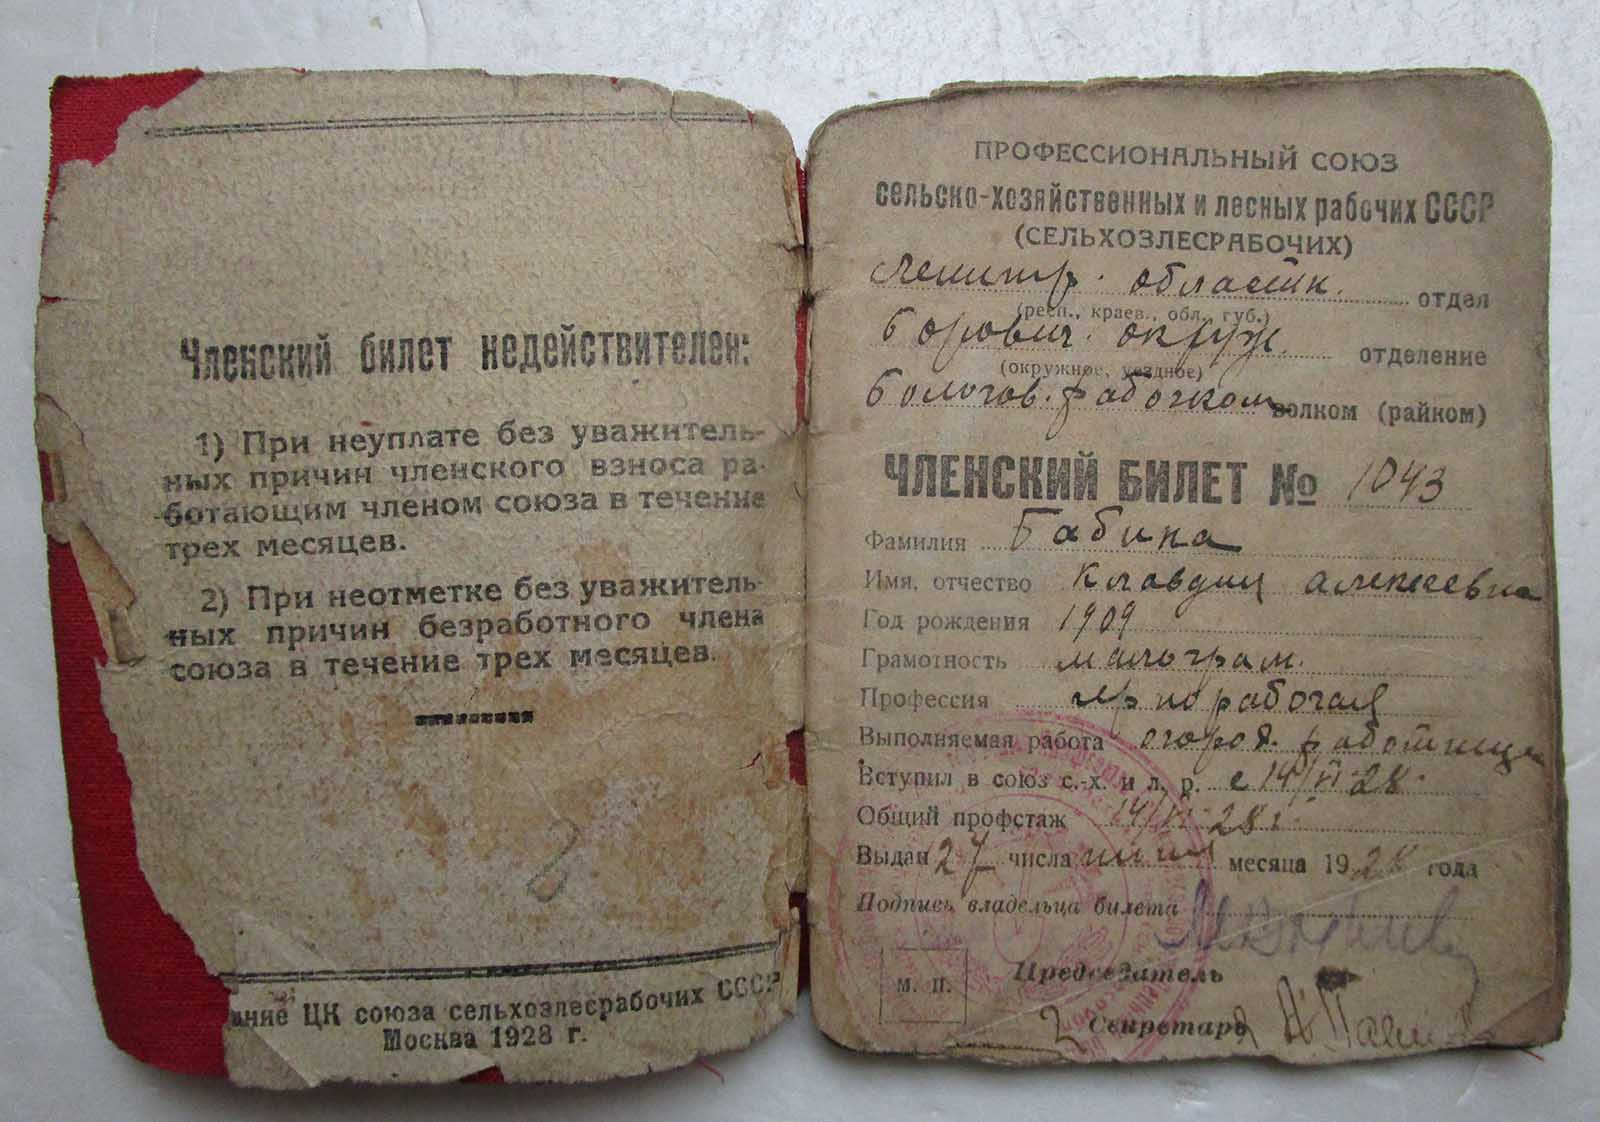 Членский билет недействителен:
1) При неуплате без уважитель-
ных причин членского взноса ра-
ботающим членом союза в течение
трех месяцев.
2) При неотметке без уважитель-
ных причин безработного члена
союза в течение трех месяцев.
ание ЦК союза сельхозлесрабочих СССР
Москва 1928 г.
ПРОФЕССИОНАЛЬНЫЙ СОЮЗ
сельско-хозяйственных и лесных рабочих СССР
(СЕЛЬХОЗЛЕСРАБОЧИХ)
Ленингр. области отдел
(респ., краев., обл., губ.)
Борович. окруж. отделение
(окружное, уездное)
Бологов. рабочком волком (райком)
ЧЛЕНСКИЙ БИЛЕТ № 1043
Фамилия Бабина
Имя, отчество Клавдия Алексеевна
Год рождения 1909
Грамотность малограм.
Профессия чернорабочая
Выполняемая работа огород. работница
Вступил в союз с.-х. и л. р. с 14/VI-28.
Общий профстаж 14/VI-28 г.
Выдан 27 числа июня месяца 1928 года
Подпись владельца билета
Председатель
М. П.
Секретарь